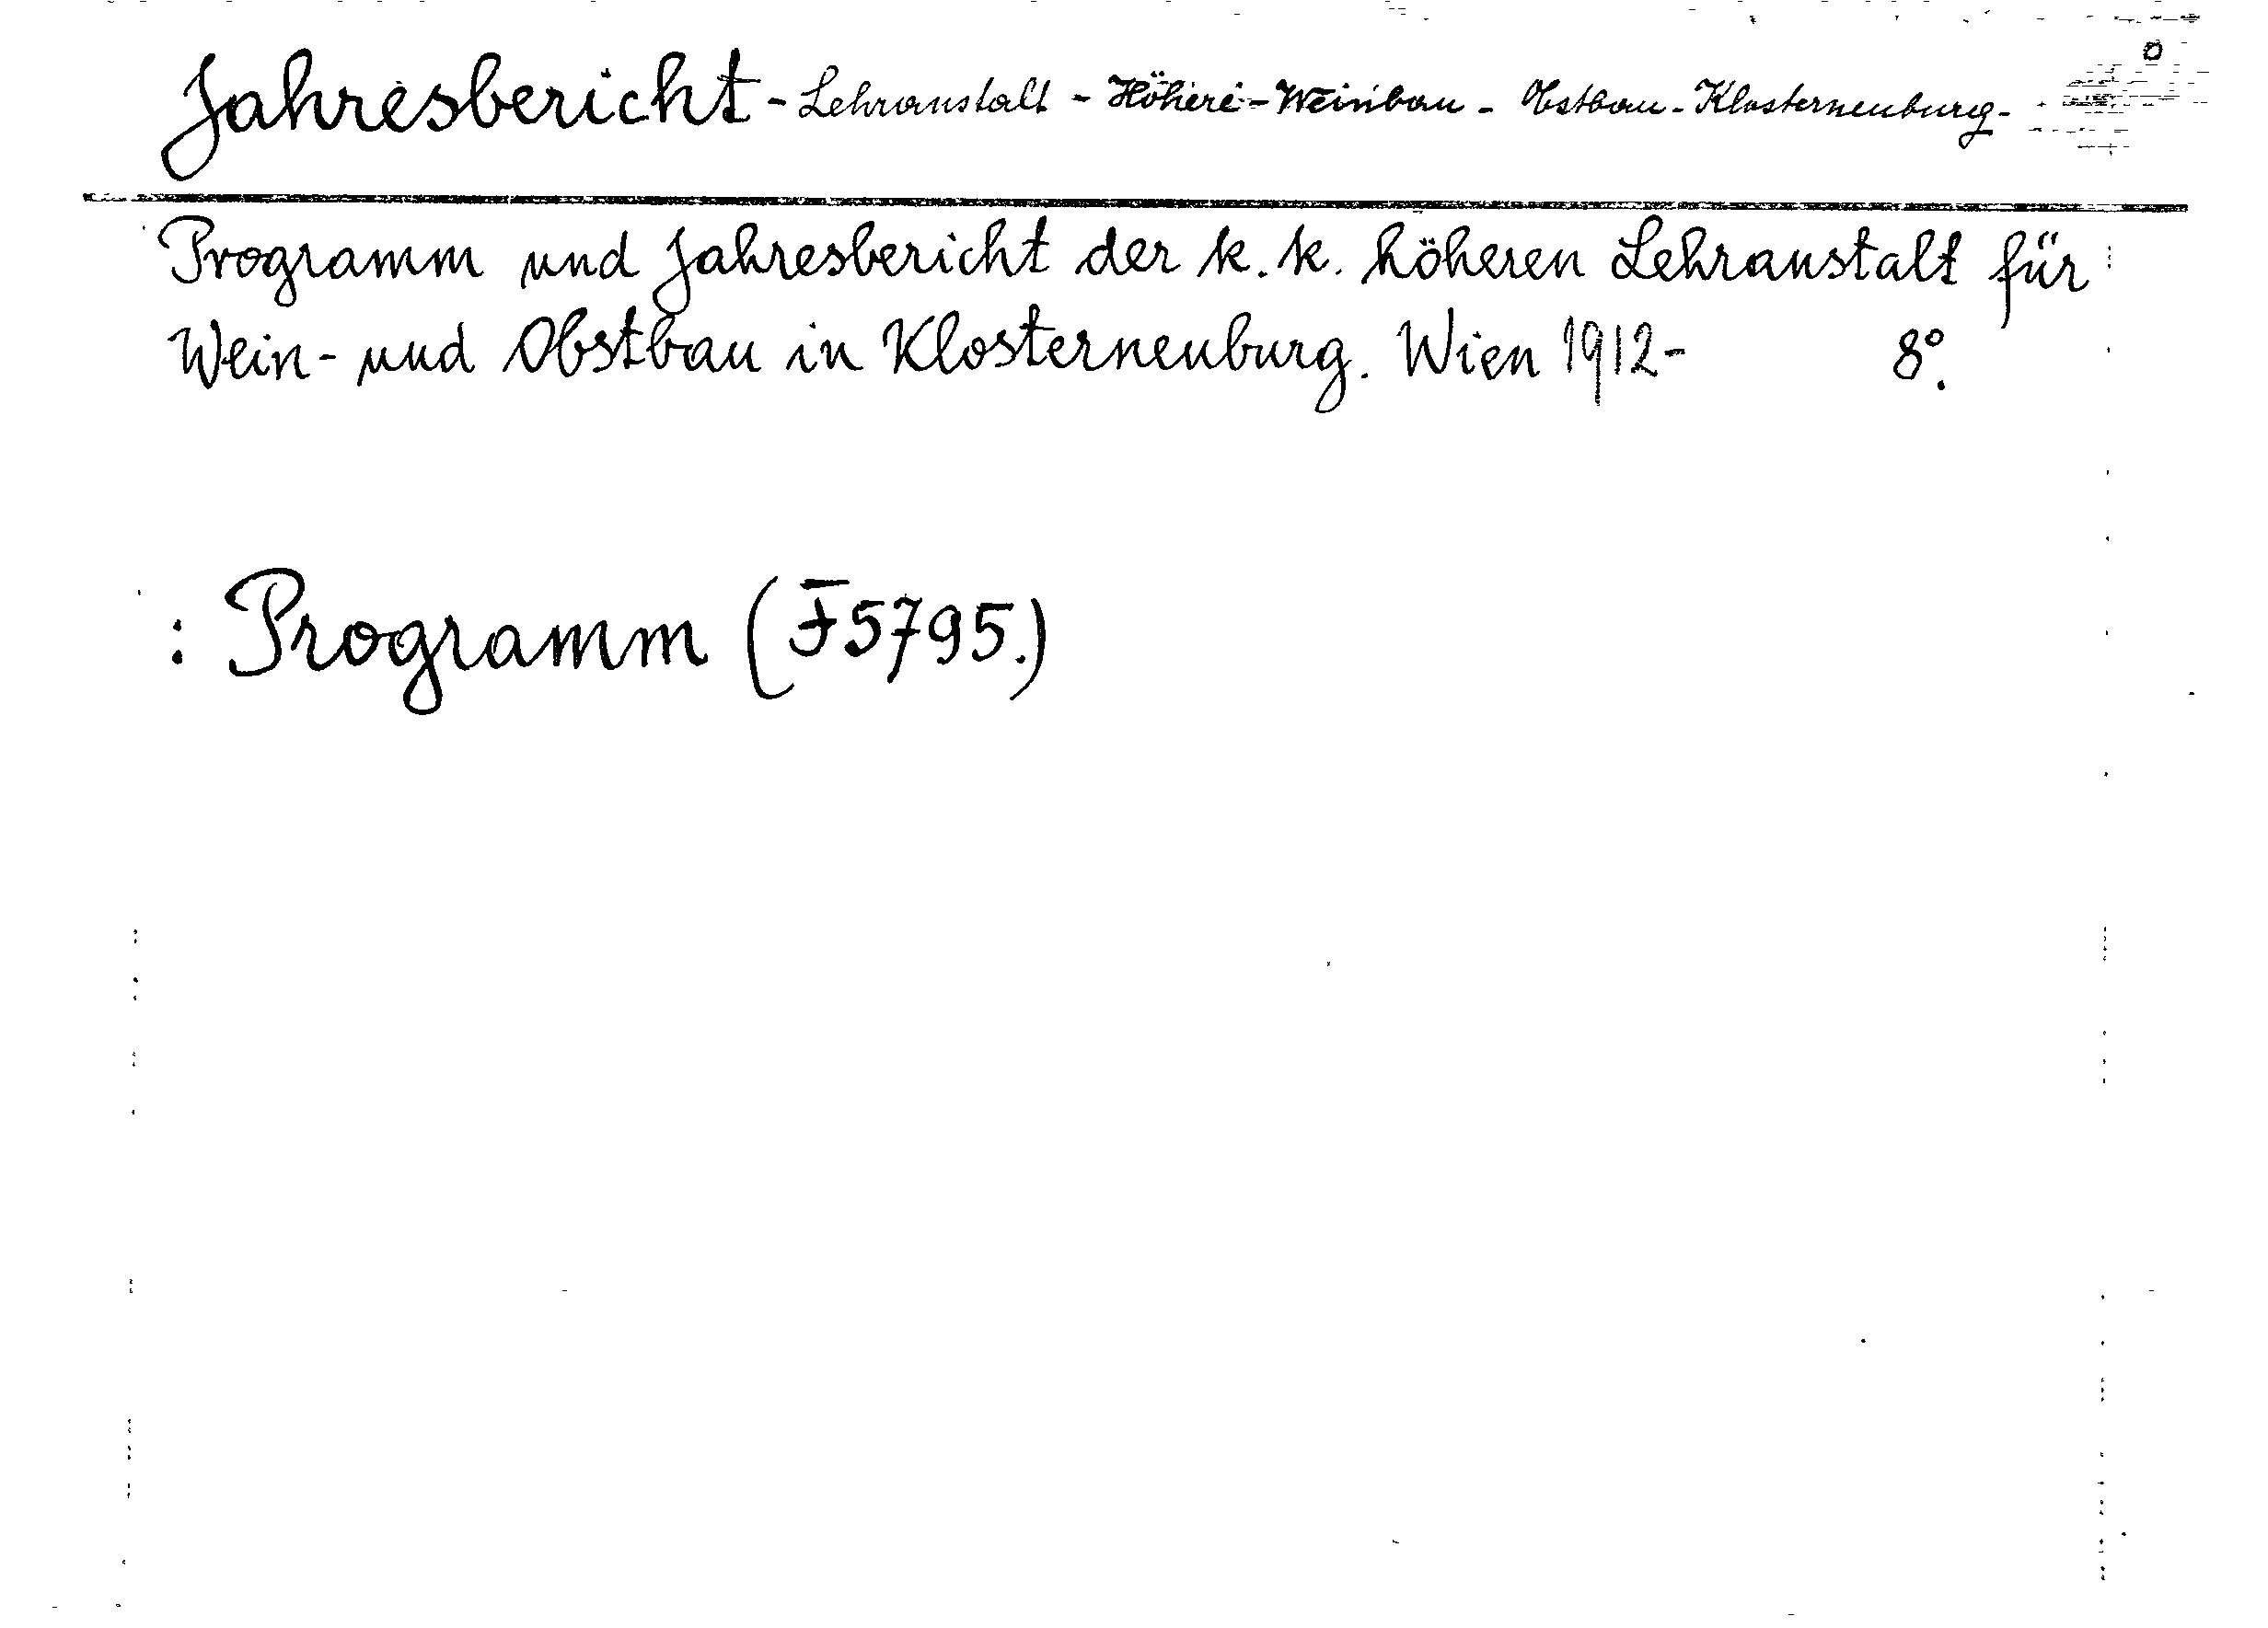 Jahresbericht - Lehranstalt - Höhere - Weinbau - Obstbau - Klosterneuburg -
Programm und Jahresbericht der k. k. höheren Lehranstalt für
Wein- und Obstbau in Klosterneuburg. Wien 1912- 8°.
: Programm (F5795.)